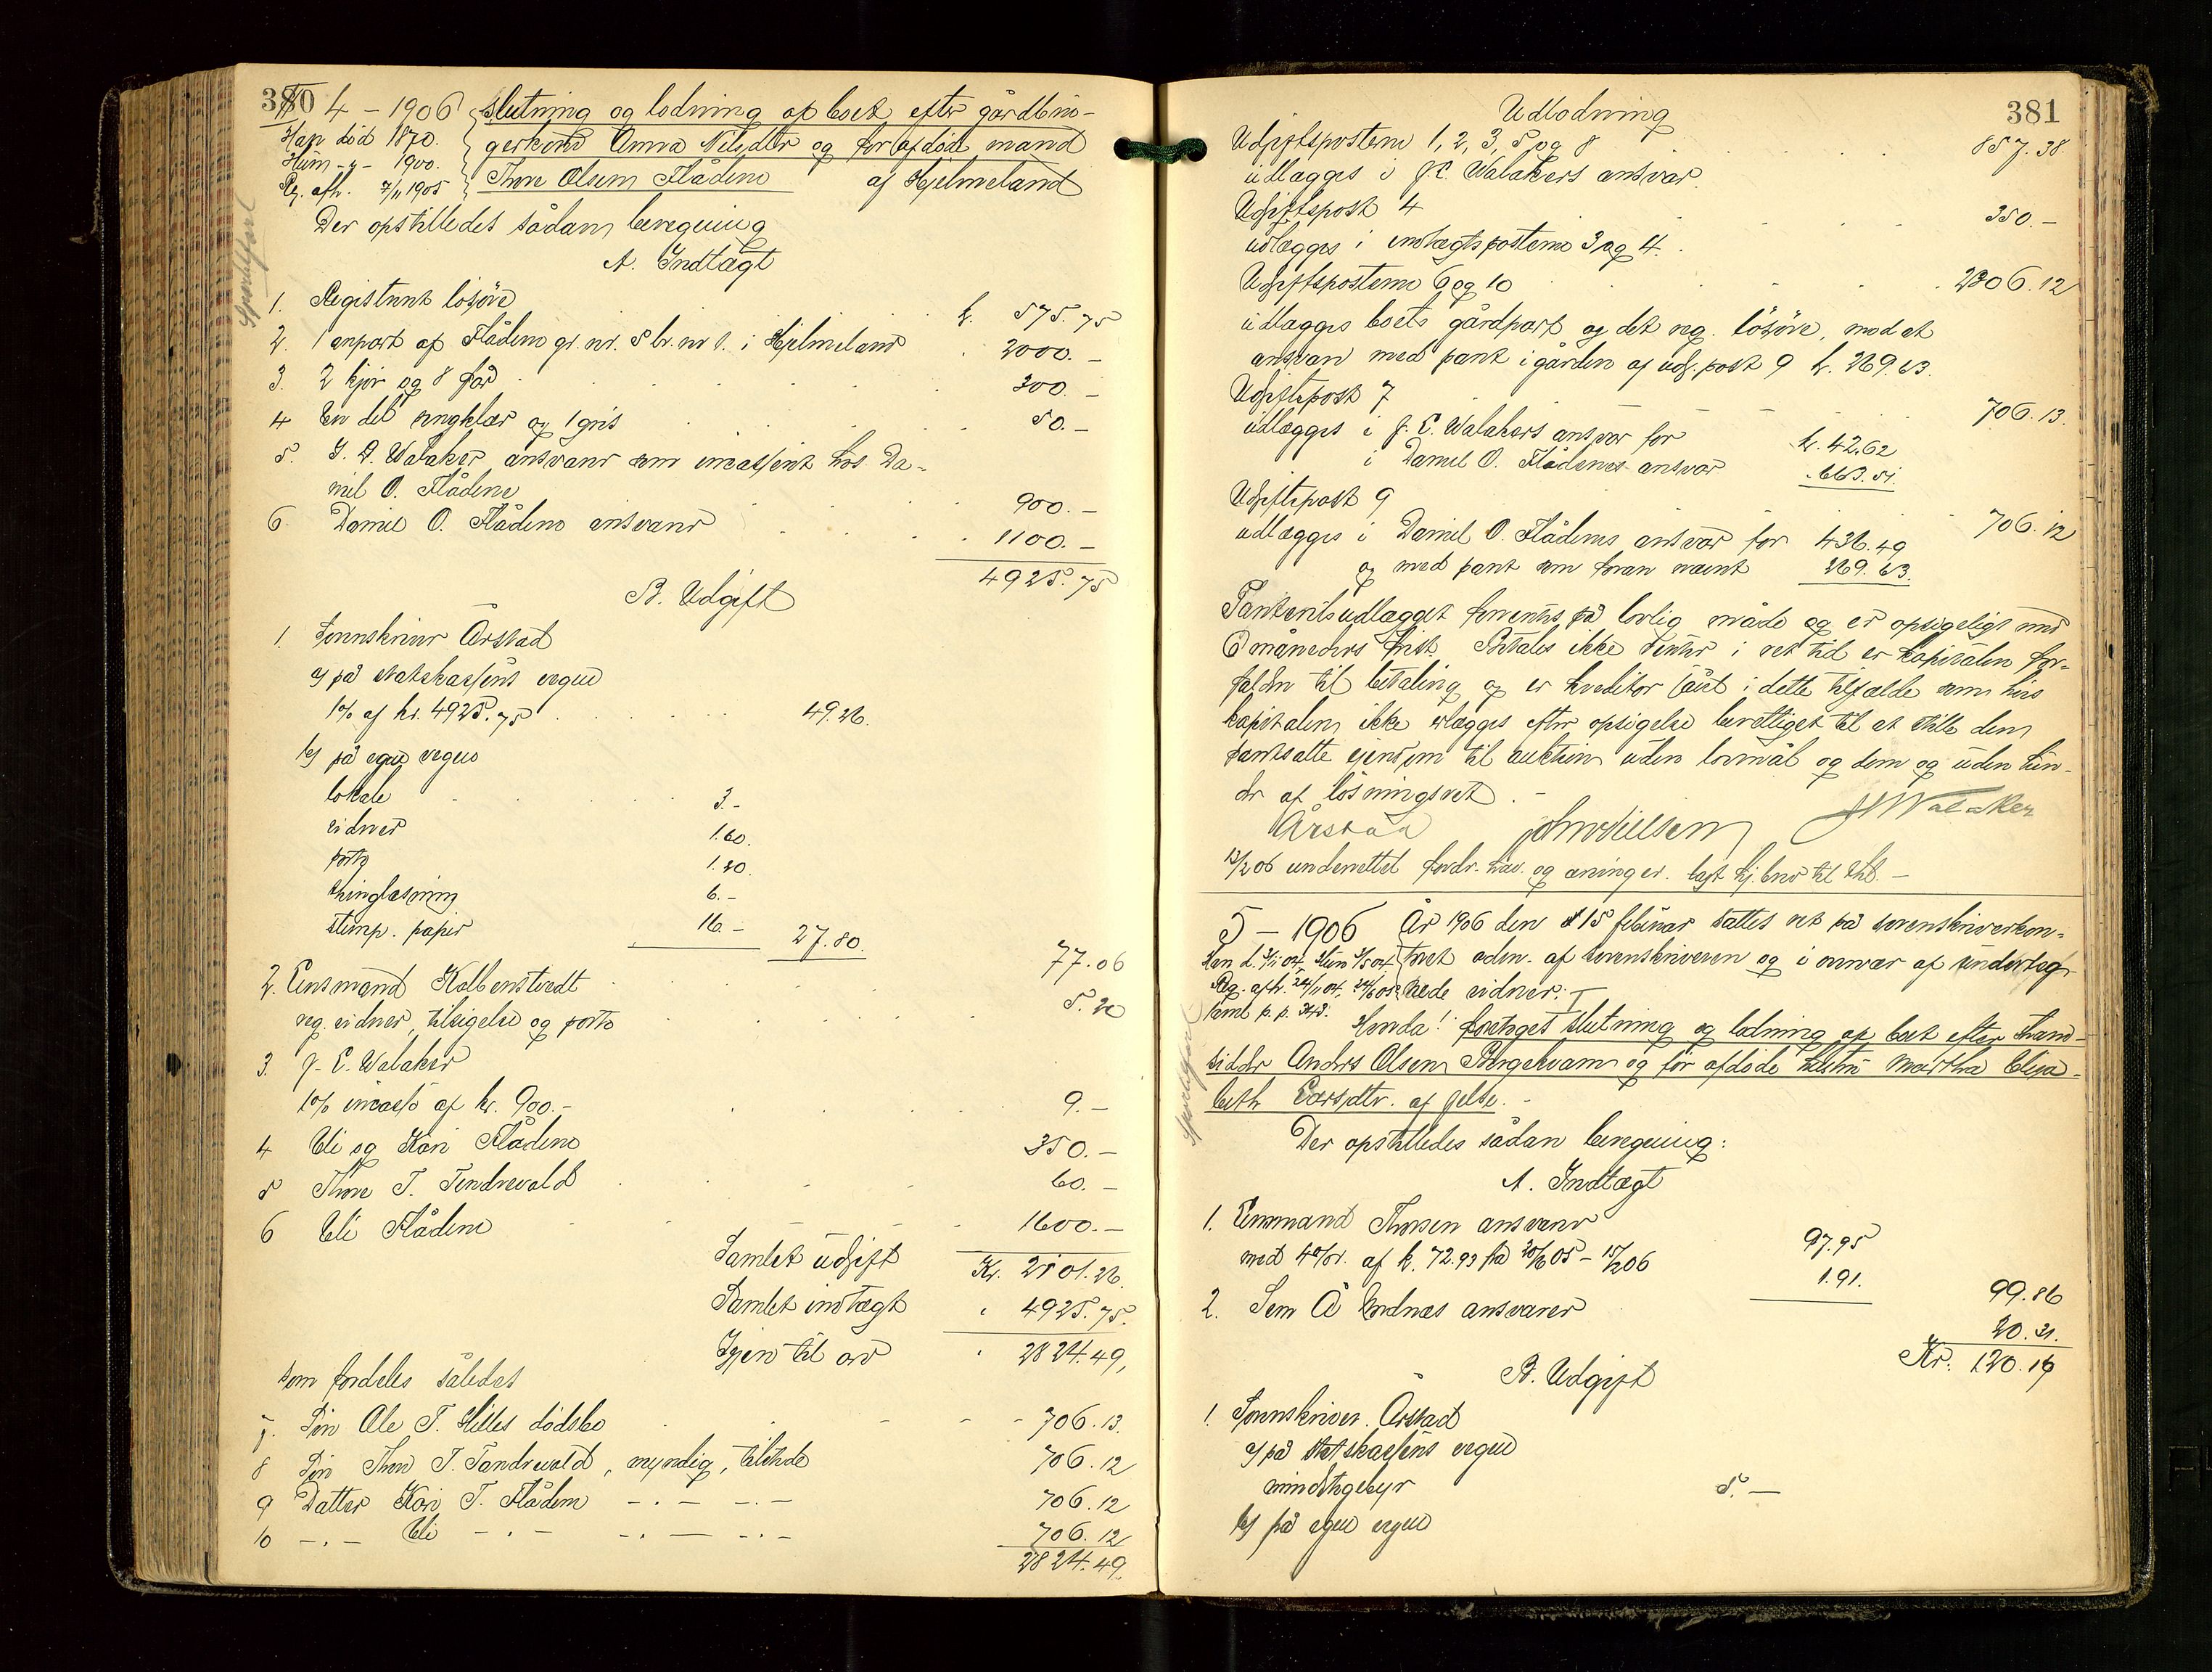 380
4 – 1906 slutning og lodning af boet efter gårdbru-
Han död 1870. gerkone Anna Nilsdtr og før afdöde mand
Hun – " – 1900. Thore Olsen Flådene af Hjelmeland
Reg. afh. 7/11 1905
Der opstilledes sådan beregning
A. Indtægt
1. Registreret lösöre k. 575.75
2. 1 anport af Flådene gr. nr. 5 br. nr 1. i Hjelmeland 2000.–
3. 2 kjör og 8 får 300.–
4 En del sengklær og 1 gris 50.–
5. J. E. Walaker ansvarer som incasseret hos Da-
niel O. Flådene 900.–
6. Daniel O. Flådene ansvarer 1100.–
4925.75
B. Udgift
1. Sorenskriver Årstad
a) på statskassens vegne
1% af kr. 4925.75 49.26.
b) på egne vegne
lokale 3.–
vidner 1.60.
porto 1.20.
thinglæsning 6.–
stemp. papir 16.– 27.80.
77.06
2. Lensmand Kolbenstvedt
reg. vidner, tilsigelse og porto 5.20
3. J. E. Walaker
1% incasso af kr. 900.– 9.–
4 Eli og Kari Flådene 350.–
5 Thore T. Tendrevold 60.–
6 Eli Flådene 1600.–
Samlet udgift Kr. 2101.26.
Samlet indtægt " 4925.75.
Igjen til arv " 2824.49,
som fordeles således
7. Sön Ole T. Hilles dödsbo 706.13.
8 Sön Thore T. Tandrevold, myndig, tilstede 706.12
9 Datter Kari T. Flådene –.– –.– 706.12
10 –.– Eli –.– –.– –.– 706.12
2824.49.
381
Udlodning
Udgiftsposterne 1, 2, 3, 5 og 8 857.38.
udlægges i J. E. Walakers ansvar.
Udgiftspost 4 350.–
udlægges i indtægtsposterne 3 og 4.
Udgiftsposterne 6 og 10 2306.12
udlægges boets gårdpart og det reg. lösöre, mod at
ansvare med pant i gården af udg. post 9 k. 269.63.
Udgiftspost 7 706.13.
udlægges i J. E. Walakers ansvar for k. 42.62
i Daniel O. Flådenes ansvar 663.51.
Udgiftspost 9 706.12
udlægges i Daniel O. Flådenes ansvar for 436.49
og med pant som foran nævnt 269.63.
Panteretsudlægget forrentes på lovlig måde og er opsigeligt med
3 måneders frist. Betales ikke renter i ret tid er kapitalen for-
falden til betaling og er kreditor såvel i dette tilfælde som hvis
kapitalen ikke erlægges efter opsigelse berettiget til at stille den
pantsatte eiendom til auktion uden lovmål og dom og uden hin-
dr af lösningsret. –
Årstad John Nielsen J E Walaker
13/2 06 underrettet fordr. hav. og arvinger.
5 – 1906 År 1906 den 15 februar sattes ret på sorenskriverkon-
toret adm. af sorenskriveren og i nærvær af underteg-
nede vidner:
Hvorda! foretoges slutning og lodning af boet efter strand-
sidder Anders Olsen Bergekvam og før afdöde hustru Martha Elisa-
beth Larsdtr. af Jelse. –
Der opstilledes sådan beregning:
A. Indtægt
1. Lensmand Thorsen ansvarer 97.95
med 4% r. af k. 72.93 fra 20/6 05 – 15/2 06 1.91. 99.86
2. Sem Å Endnæs ansvarer 20.31.
Kr. 120.17
B. Udgift
1. Sorenskriver Årstad
a) på statskassens vegne
mindstegebyr 5.–
b) på egne vegne